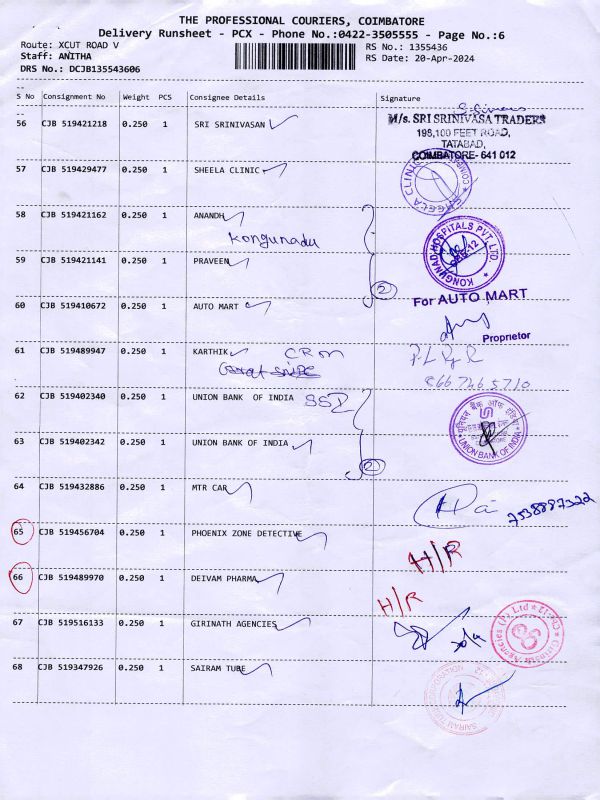 THE PROFESSIONAL COURIERS, COIMBATORE
Delivery Runsheet - PCX - Phone No.:0422-3505555 - Page No.:6
Route: XCUT ROAD V RS No.: 1355436
Staff: ANITHA RS Date: 20-Apr-2024
DRS No.: DCJB135543606
--
S No Consignment No Weight PCS Consignee Details Signature
--
56 CJB 519421218 0.250 1 SRI SRINIVASAN
M/s. SRI SRINIVASA TRADERS
198,100 FEET ROAD,
TATABAD,
COIMBATORE- 641 012
57 CJB 519429477 0.250 1 SHEELA CLINIC
SHEELA CLINIC
58 CJB 519421162 0.250 1 ANANDH
Kongunadu
KONGUNAD HOSPITALS PVT. LTD.
59 CJB 519421141 0.250 1 PRAVEEN
2
60 CJB 519410672 0.250 1 AUTO MART
For AUTO MART
Proprietor
61 CJB 519489947 0.250 1 KARTHIK CROM
866 7465710
62 CJB 519402340 0.250 1 UNION BANK OF INDIA SSI
यूनियन बैंक ऑफ इंडिया
UNION BANK OF INDIA
63 CJB 519402342 0.250 1 UNION BANK OF INDIA
2
64 CJB 519432886 0.250 1 MTR CAR
7538897322
65 CJB 519456704 0.250 1 PHOENIX ZONE DETECTIVE H/R
66 CJB 519489970 0.250 1 DEIVAM PHARMA H/R
67 CJB 519516133 0.250 1 GIRINATH AGENCIES
Girinath Agencies (P) Ltd CBE-12
68 CJB 519347926 0.250 1 SAIRAM TUBE
SAIRAM TUBE CORPORATION